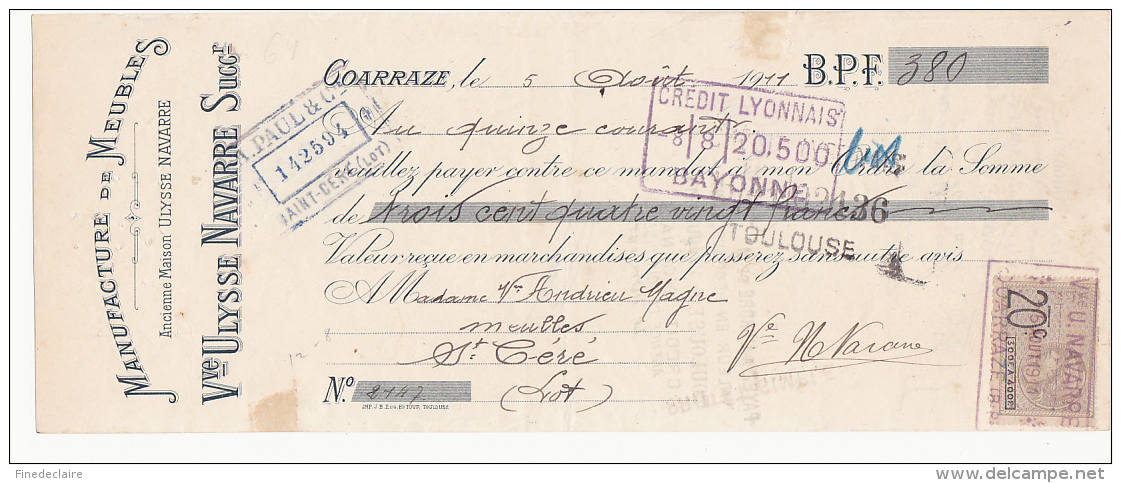 MANUFACTURE DE MEUBLES
Ancienne Maison ULYSSE NAVARRE
Vve ULYSSE NAVARRE SUCCr
64
COARRAZE, le 5 Août 1911 B.P.F. 380
A. PAUL & Cie
142594
SAINT-CÉRÉ (LOT)
CREDIT LYONNAIS
-8 8 20,500
BAYONNE
Au quinze courant
Veuillez payer contre ce mandat à mon Ordre la Somme
de trois cent quatre vingt francs
36
TOULOUSE
Valeur reçue en marchandises que passerez sans autre avis
A Madame Vve Andrieu Magne
meubles
St Céré
(Lot)
12-8
Vve U Navarre
No. 8147
IMP. J.B. TOULOUSE
Vve U. NAVARRE
AOUT 1911
COARRAZE. B.P.
20c
300F A 400F
Finedeclaire
delcampe.net